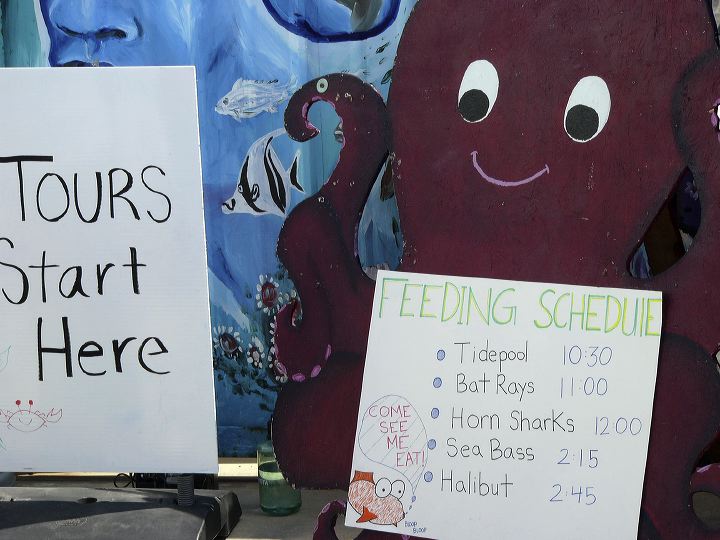 TOURS
Start
Here
FEEDING SCHEDULE
Tidepool 10:30
Bat Rays 11:00
Horn Sharks 12:00
Sea Bass 2:15
Halibut 2:45
COME
SEE
ME
EAT!
BLOOP
BLOOP